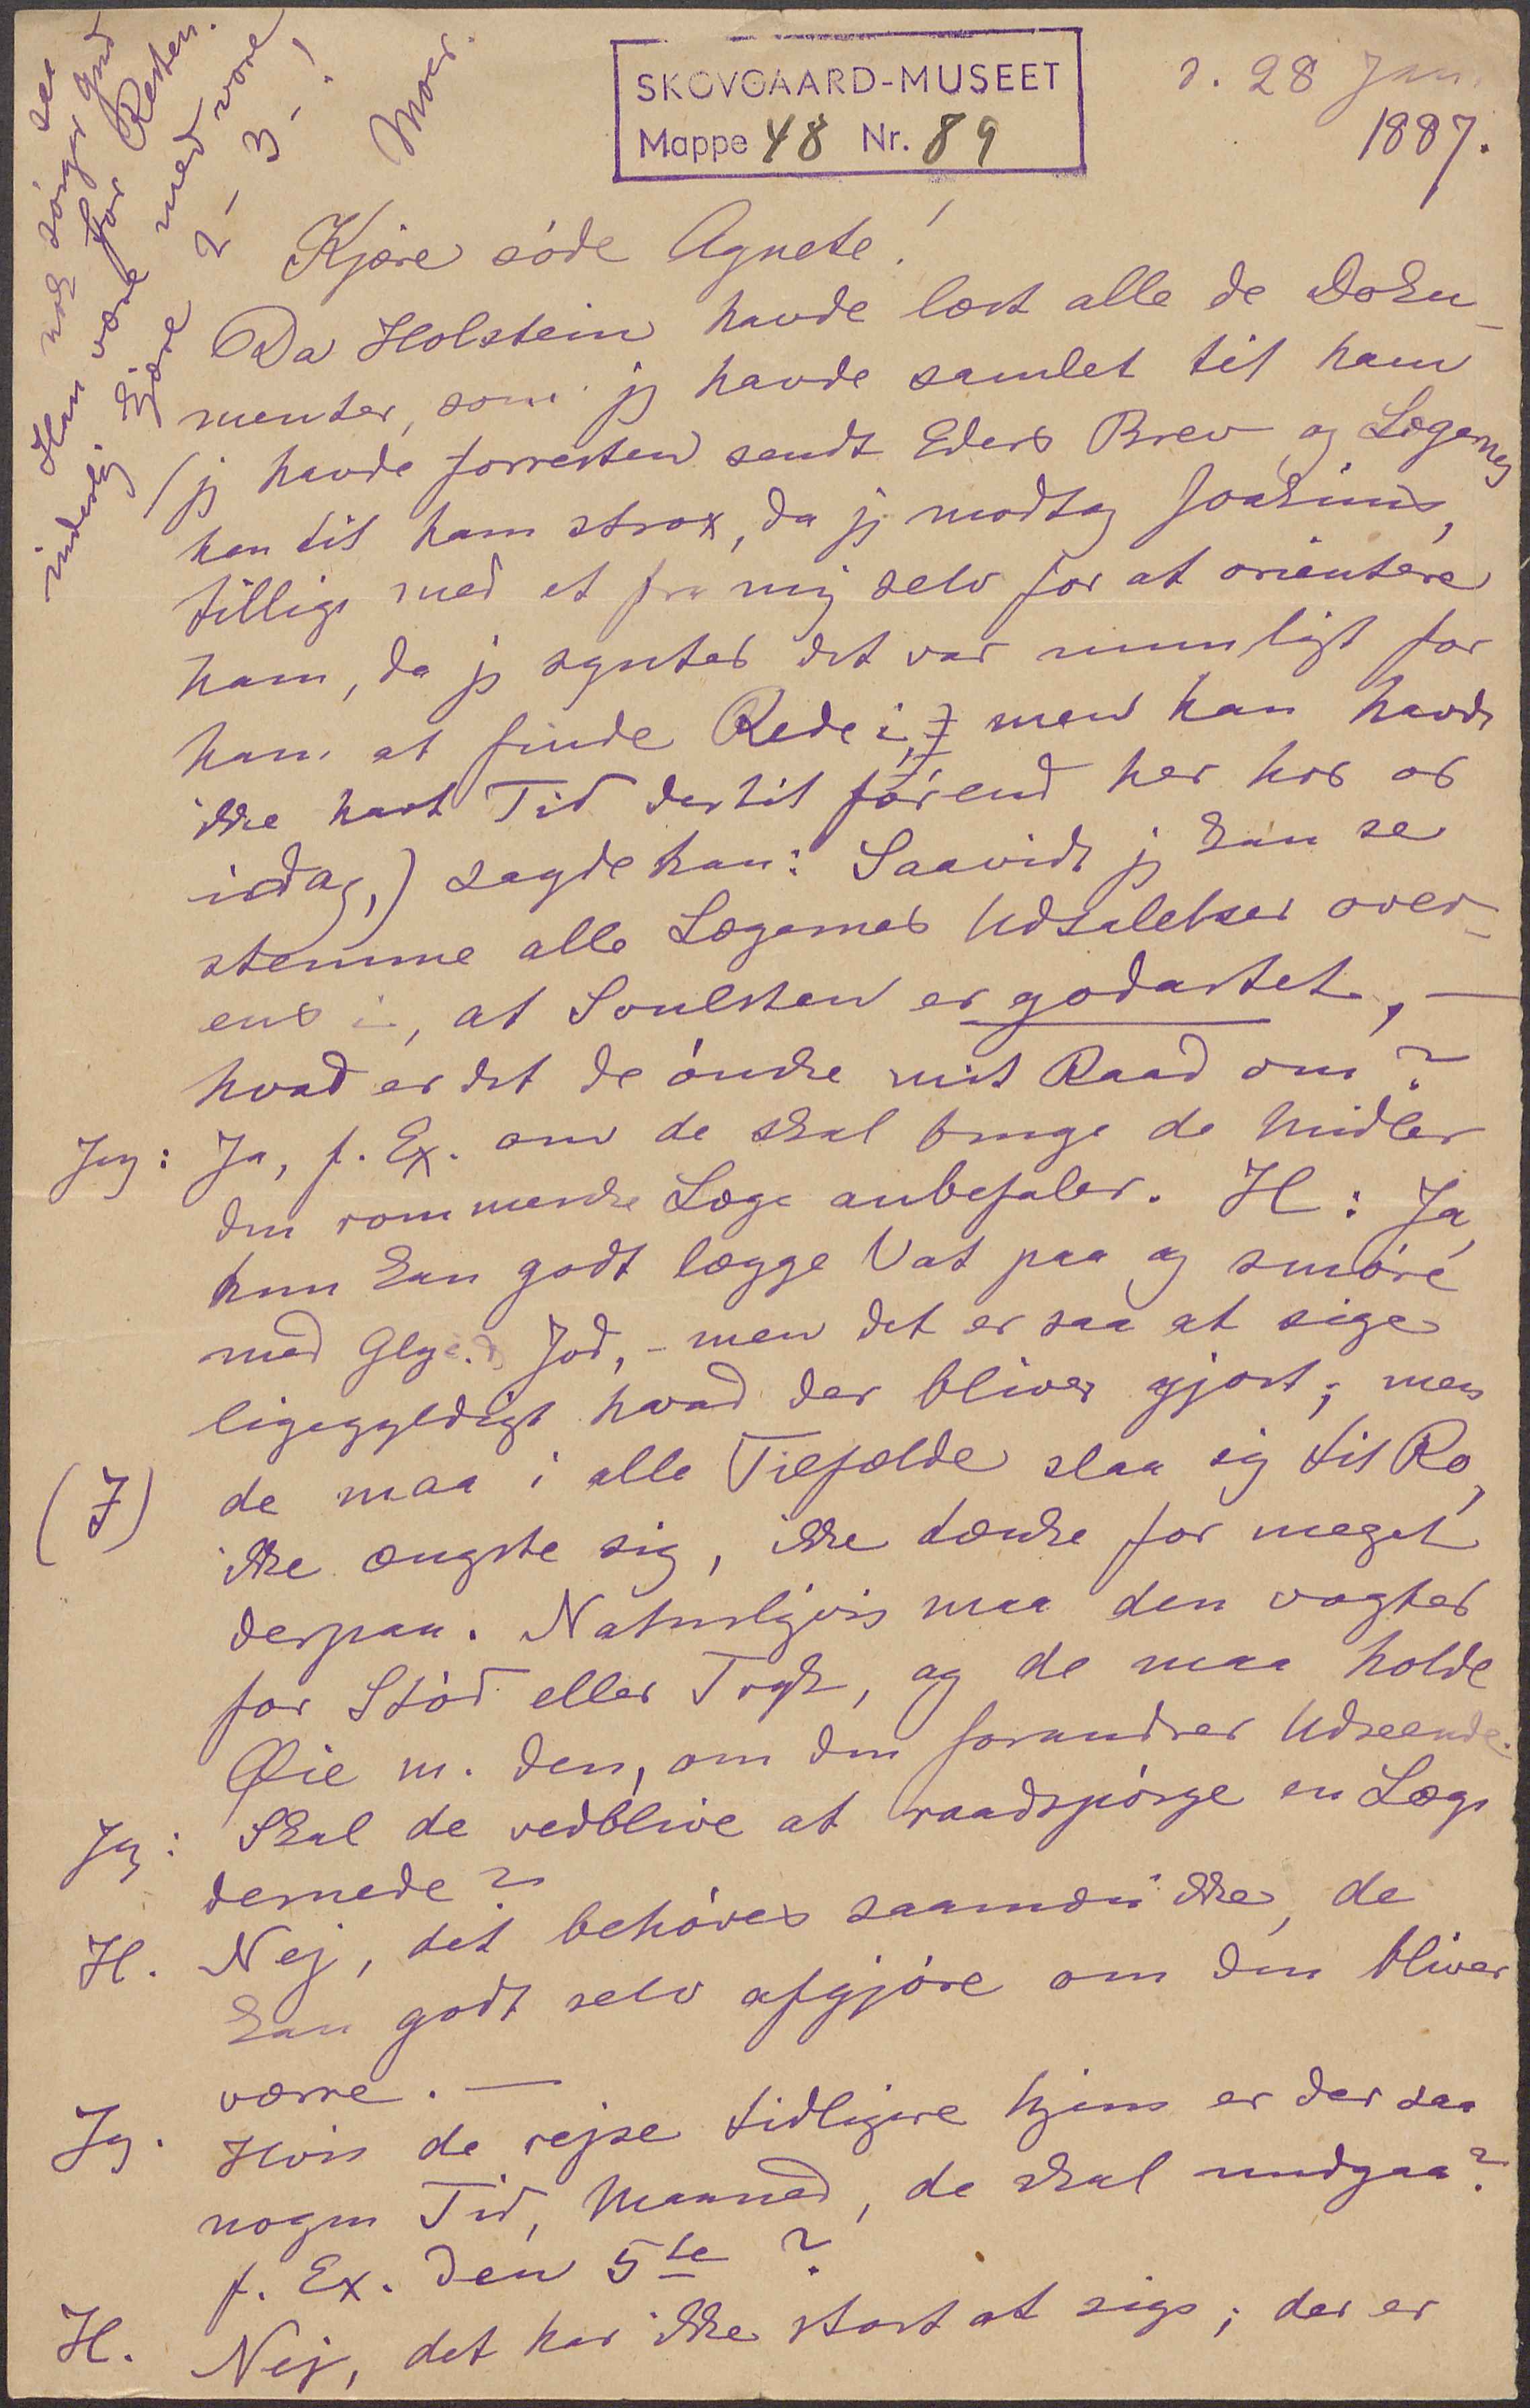 SKOVGAARD-MUSEET
Mappe 48 Nr. 89
d. 28 Jan.
1887.
Kjære søde Agnete!
Da Holstein havde læst alle de Doku-
menter, som jeg havde samlet til ham
(jeg havde forresten sendt Eders Brev og Lægernes
hen til ham strax, da jeg modtog Joakims,
tillige med et fra mig selv for at orientere
ham, da jeg syntes det var umuligt for
ham at finde Rede i, men han havde
ikke havt Tid dertil førend her hos os
idag,) sagde han: Saavidt jeg kan se
stemme alle Lægernes Udtalelser over-
ens i, at Svulsten er godartet, —
hvad er det de ønske mit Raad om?
Jeg: Ja, f. Ex. om de skal bruge de Midler
den romerske Læge anbefaler. H: Ja,
hun kan godt lægge Vat paa og smøre
med Glyc. Jod, - men det er saa at sige
ligegyldigt hvad der bliver gjort; men
(I) de maa i alle Tilfælde slaa sig til Ro,
ikke ængste sig, ikke tænke for meget
derpaa. Naturligvis maa den vogtes
for Stød eller Tryk, og de maa holde
Øie m. den, om den forandrer Udseende.
Jeg: Skal de vedblive at raadspørge en Læge
dernede?
H. Nej, det behøves saamæn ikke, de
kan godt selv afgjøre om den bliver
værre. —
Jeg. Hvis de rejse tidligere hjem er der saa
nogen Tid, Maaned, de skal undgaa?
f. Ex. den 5te?
H. Nej, det har ikke stort at sige; der er
nok sørger Gud
for Resten.
Han være med vore
inderlig kjære 2 - 3 - !
Moer.